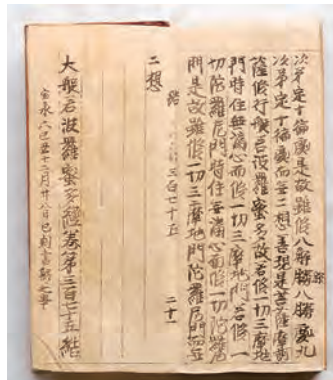 次第定十徧處是故雖修八解勝八勝處九
次第定十徧處而无二想善現是菩薩摩訶
薩修行般若波羅蜜多故若修一切三摩地
門時住無漏心而修一切三摩地門若修一
切陀羅尼門時住無漏心而修一切陀羅尼
門是故雖修一切三摩地門陀羅尼門而無
二想
結 三百七十五 二十一
大般若波羅蜜多經卷第三百七十五 結
宝永六己丑十二月廿八日巳刻書寫之畢